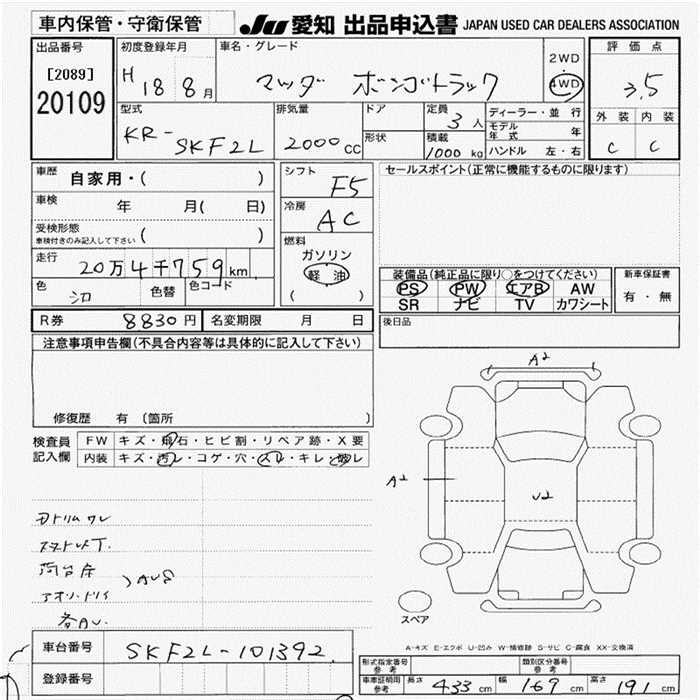 車内保管・守衛保管 JU 愛知 出品申込書 JAPAN USED CAR DEALERS ASSOCIATION
出品番号 初度登録年月 車名・グレード 2WD 評価点
[2089] H 18 8月 マツダ ボンゴトラック 4WD 3.5
20109 外装 内装
型式 排気量 ドア 定員 3人 ディーラー・並行 C C
KR-SKF2L 2000cc 形状 積載 1000kg モデル年式 年
ハンドル 左・右
車歴 自家用・( ) シフト F5 セールスポイント(正常に機能するものに限ります)
車検 年 月( 日) 冷房 AC
受検形態 ( )
車検付きのみ記入して下さい
燃料
走行 20万4千759km ガソリン
軽油
( )
色 色替 色コード
装備品(純正品に限り○をつけてください) 新車保証書
PS PW エアB AW 有・無
SR ナビ TV カワシート
R券 8830円 名変期限 月 日 後日品
注意事項申告欄(不具合内容等は具体的に記入して下さい)
修復歴 有 (箇所 )
検査員記入欄 FW キズ・飛石・ヒビ割・リペア跡・X要
内装 キズ・汚レ・コゲ・穴・スレ・キレ・破レ
A2
A2
U2
スペア
A-キズ E-エクボ U-凹み W-補修跡 S-サビ C-腐食 XX-交換済
車台番号 SKF2L-101392
登録番号
形式指定番号 参考 類別区分番号 参考
車庫証明用 参考 長さ 433cm 幅 169cm 高さ 191cm